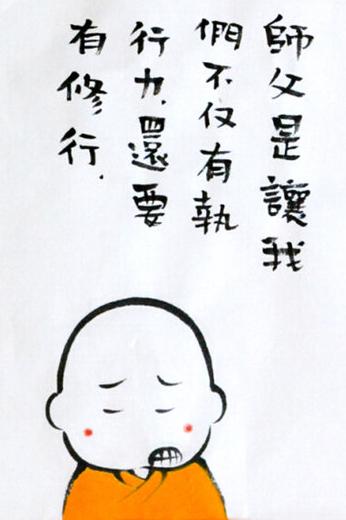 師父是讓我
們不仅有執
行力.還要
有修行.